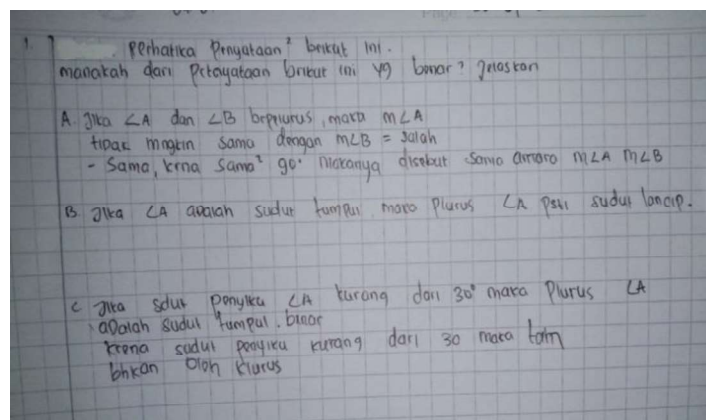 1
Perhatika Prnyataan² brikut ini.
manakah dari Pertayataan brikut ini yg benar? Jelaskan
A. Jika ∠A dan ∠B berplurus, maka m∠A
tidak mngkin sama dengan m∠B = salah
- Sama, krna sama² 90° makanya disebut sama antara m∠A m∠B
B. Jika ∠A adalah sudut tumpul maka Plurus ∠A pasti sudut lancip.
C Jika sdut Penyiku ∠A kurang dari 30° maka Plurus ∠A
adalah sudut tumpul. benar
krena sudut penyiku kurang dari 30 maka
oleh